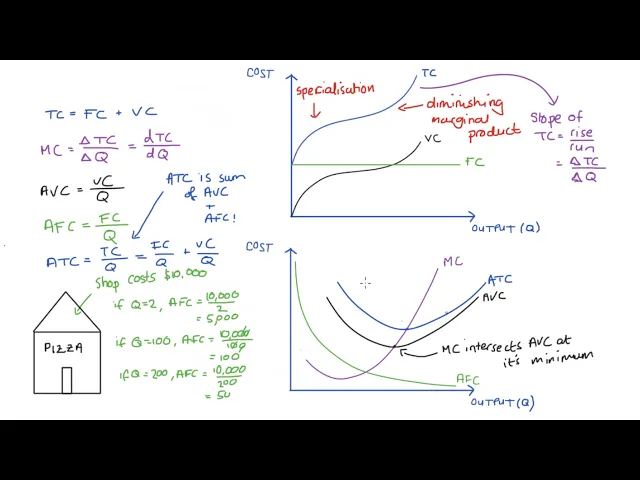 TC = FC + VC
MC = ΔTC/ΔQ = dTC/dQ
AVC = VC/Q
ATC is sum
of AVC
+
AFC!
AFC = FC/Q
ATC = TC/Q = FC/Q + VC/Q
Shop costs $10,000
if Q=2, AFC = 10,000/2
= 5,000
if Q=100, AFC = 10,000/100
= 100
if Q=200, AFC = 10,000/200
= 50
PIZZA
COST
TC
specialisation
diminishing
marginal
product
VC
FC
OUTPUT (Q)
Slope of
TC = rise/run
= ΔTC/ΔQ
COST
MC
ATC
AVC
MC intersects AVC at
it's minimum
AFC
OUTPUT (Q)